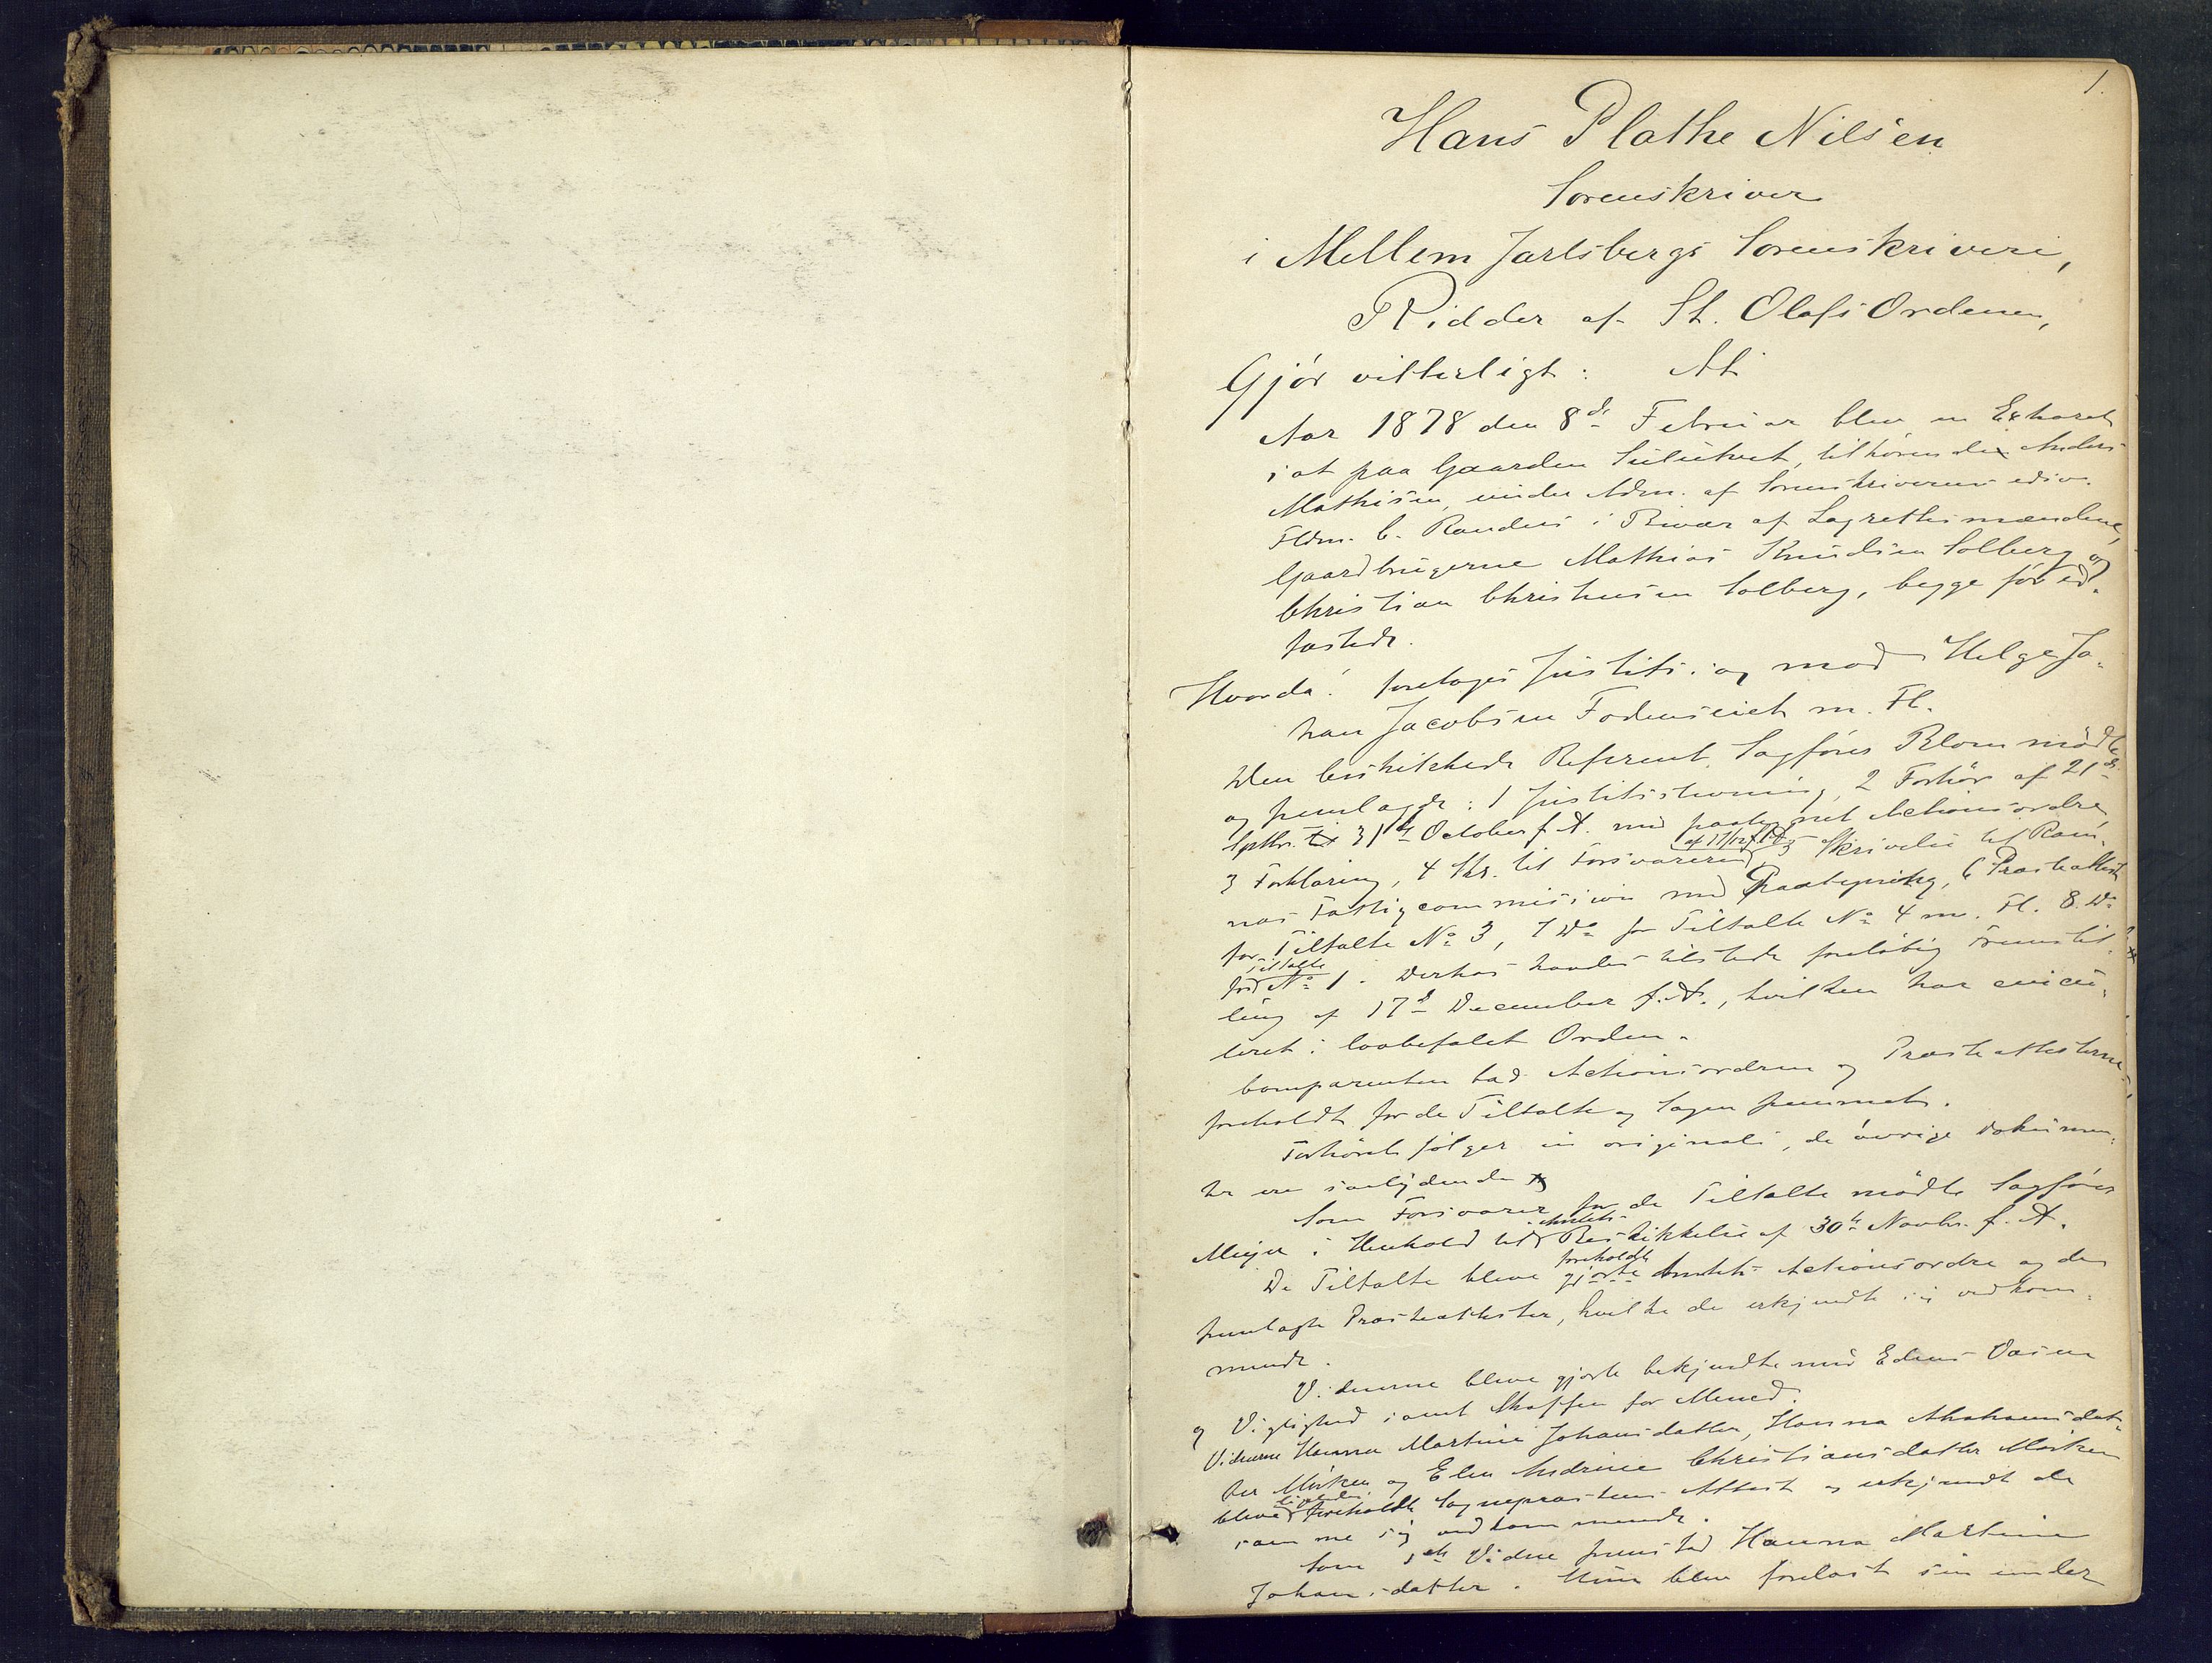 1.
Hans Plathe Nilsen
Sorenskriver
i Mellem Jarlsbergs Sorenskriveri,
Ridder af St. Olafs Ordenen,
Gjör vitterligt: At
Aar 1878 den 8de Februar blev en Extraret
sat paa Gaarden tilhörende Anders
Mathisen, under Adm. af Sorenskriverens edsv.
Fldm. C. Randers i Bivær af Lagrettesmændene,
Gaardbrugerne Mathias Knudsen Solberg og
Christian Christensen Solberg, begge för ed-
fæstede.
Hvorda: foretoges Justitssag mod Helge Jo-
han Jacobsen m. Fl.
Den beskikkede Referent, Sagförer Blom mödte
og fremlagde: 1 Justitsstevning, 2 Forhör af 21de
Septbr. 31te October f. A. med paategnet Actionsordre
af 17/12 f. A.
3 Forklaring, 4 Skr. til Forsvareren 5 Skrivelse til Ram-
næs Fattigcommission med Paategning, 6 Præsteattest
for Tiltalte No 3, 7 Do for Tiltalte No 4 m. Fl. 8. Do
Tiltalte
for No 1. Derhos havdes tilstede foreløbig Fremstil-
ling af 17de December f. A., hvilken har circu-
leret i lovbefalet Orden.
Comparenten bad Actionsordren og Præsteattesterne
foreholdt for de Tiltalte og Sagen fremmet.
Forhöret fölger in originali, de övrige Dokumen-
ter ere saalydende
Som Forsvarer for de Tiltalte mödte Sagförer
Amtets
Meyer i Henhold til Beskikkelse af 30te Novbr. f. A.
foreholdt
De Tiltalte bleve gjorte Amtets Actionsordre og de
fremlagte Præsteattester, hvilke de erkjendte sig vedkom-
mende.
Vidnerne bleve gjorte bekjendte med Edens Væsen
og Vigtighed samt Straffen for Mened.
Vidnerne Hanna Martine Johansdatter, Hanna Abrahamsdat-
ter Mörken og Elen Andrine Christiansdatter Mörken
ligeledes
bleve foreholdt Sognepræstens Attest og erkjendt de
samme sig vedkommende.
Som 1ste Vidne fremstod Hanna Martine
Johansdatter. Hun blev forelæst sin under